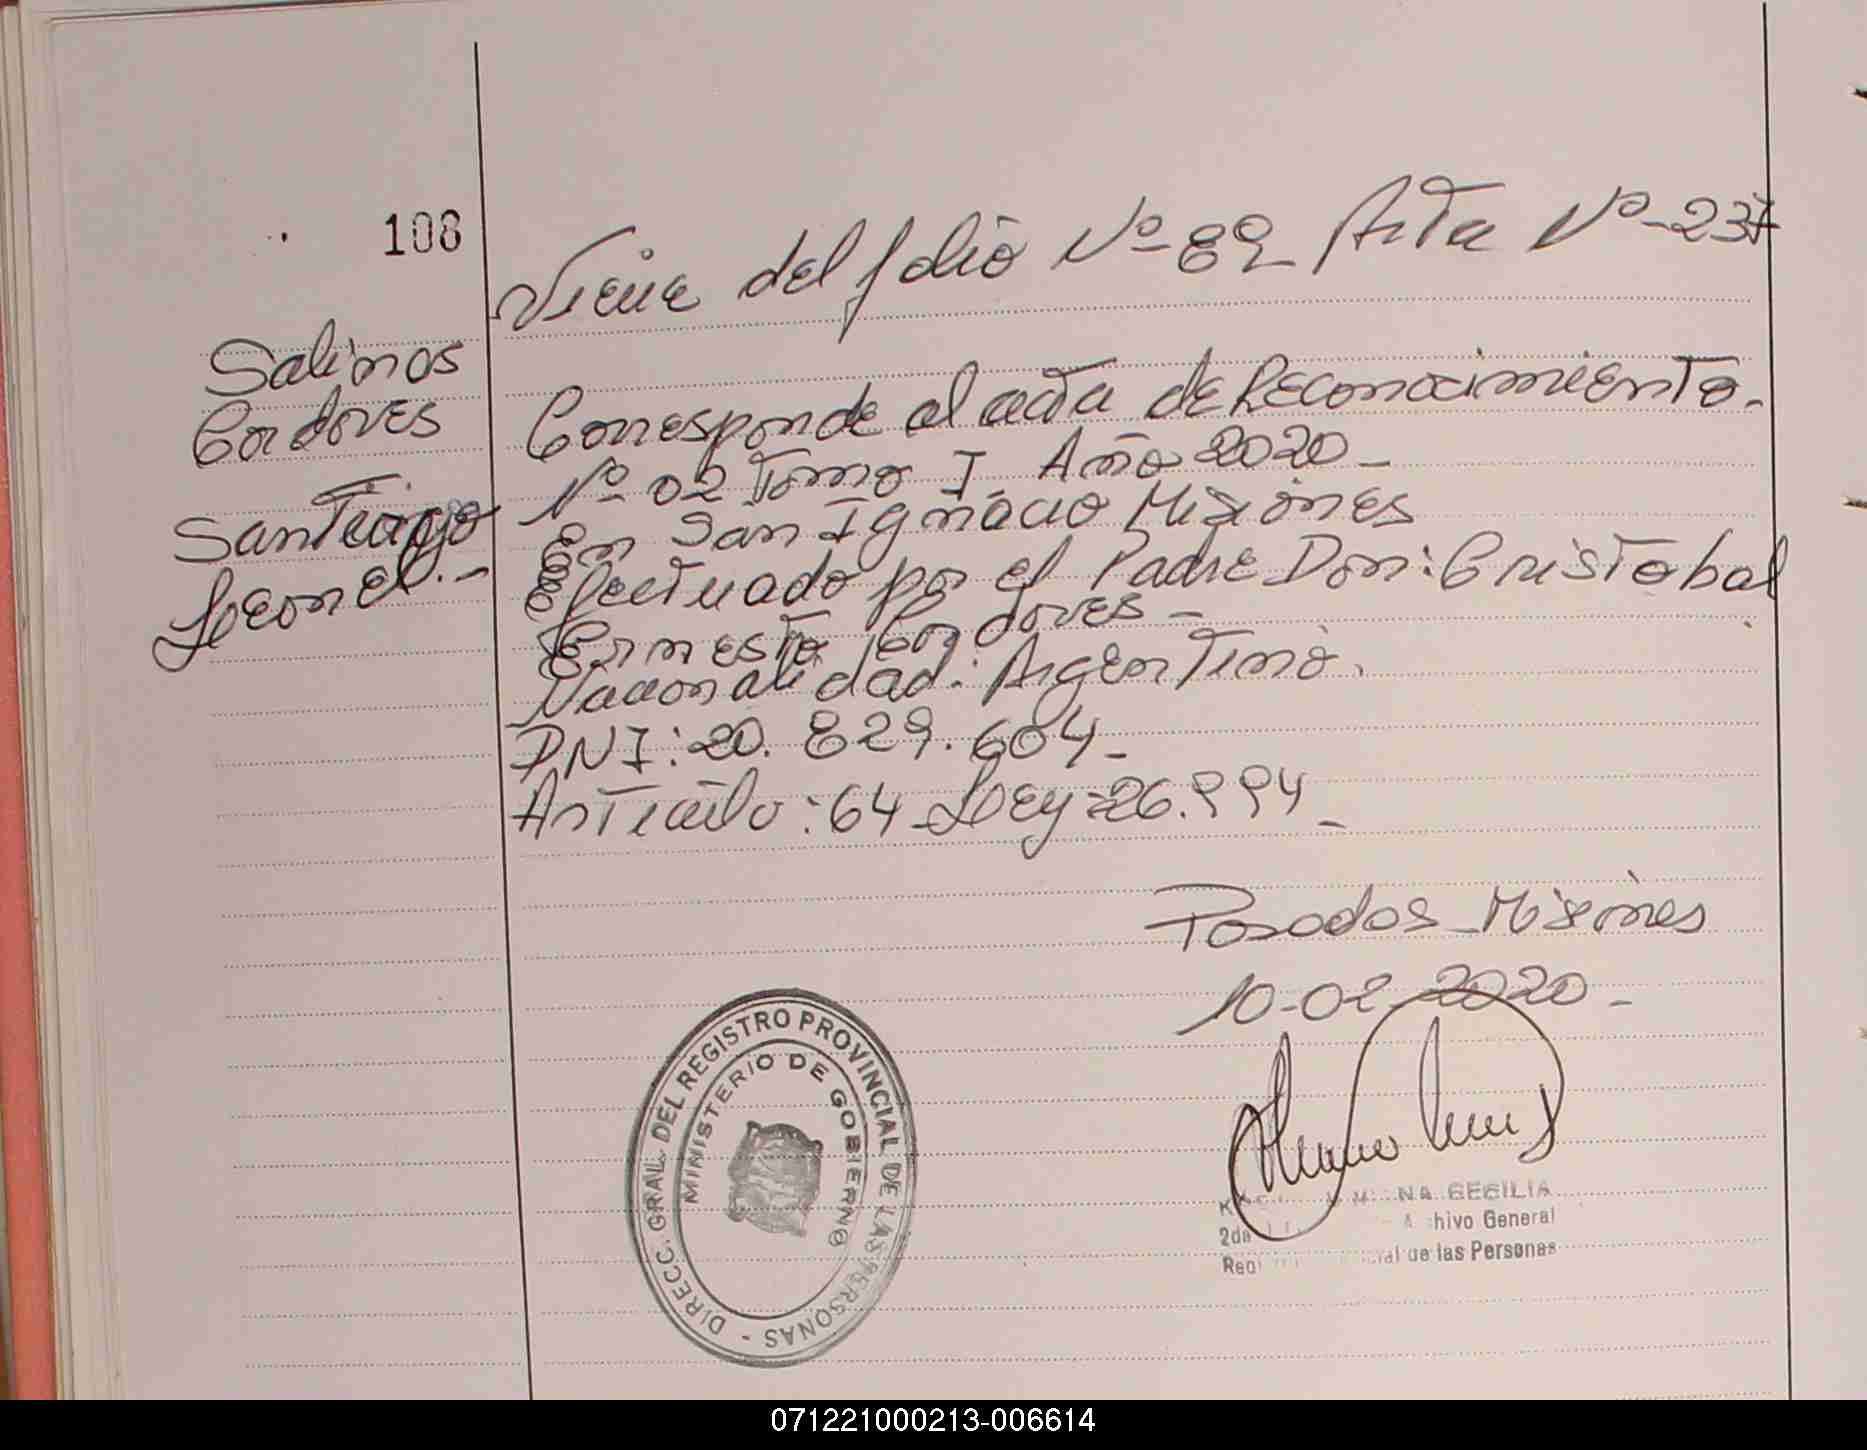 108
Viene del folio Nº 82 Acta Nº-237
Salinas
Cordoves
Santiago
Leonel.-
Corresponde al acta de Reconocimiento.
Nº 02 Tomo I. Año 2020-
En San Ignacio Misiones
Efectuado por el Padre Don: Cristobal
Ernesto Cordoves-
Nacionalidad: Argentino.
DNI: 20.829.604-
Articulo: 64 Ley: 26.994-
Posadas-Misiones
10-02-2020-
DIRECC. GRAL. DEL REGISTRO PROVINCIAL DE LAS PERSONAS -
MINISTERIO DE GOBIERNO
CECILIA
2da
General
de las Personas
071221000213-006614